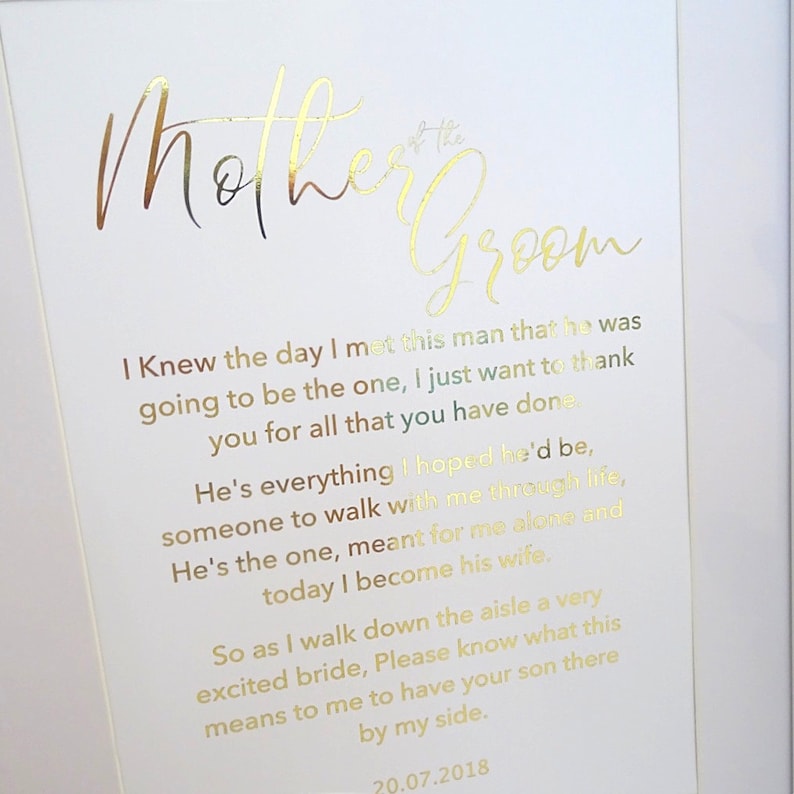 Mother of the
Groom
I Knew the day I met this man that he was
going to be the one, I just want to thank
you for all that you have done.
He's everything I hoped he'd be,
someone to walk with me through life,
He's the one, meant for me alone and
today I become his wife.
So as I walk down the aisle a very
excited bride, Please know what this
means to me to have your son there
by my side.
20.07.2018